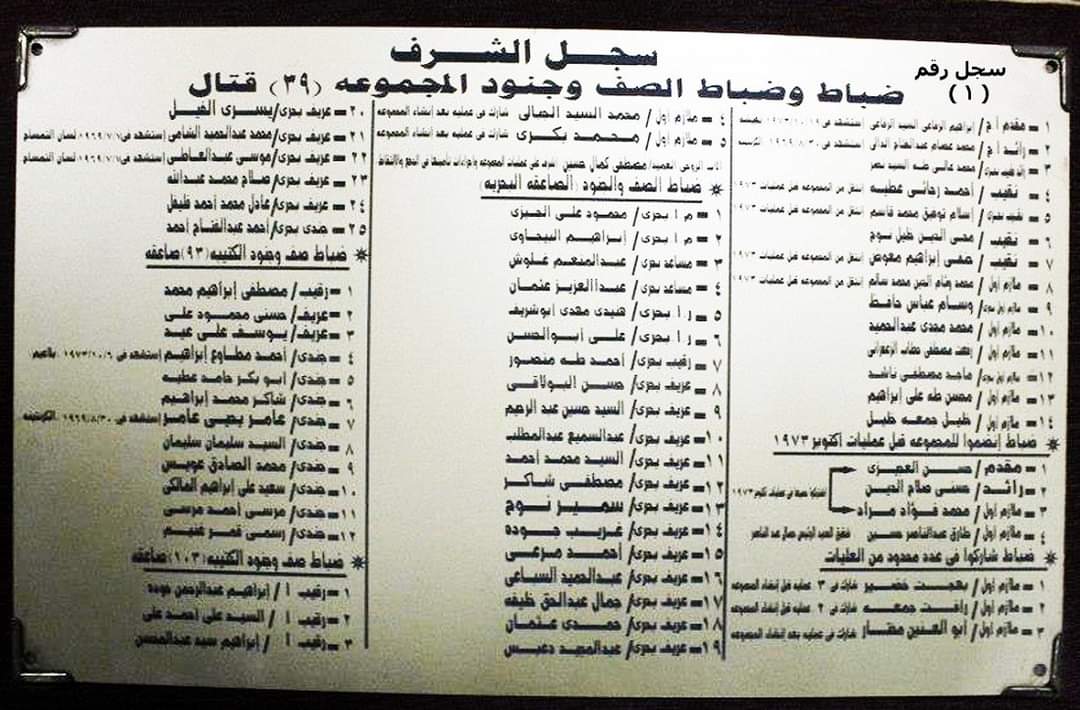 سجل الشرف
سجل رقم
(١)
ضباط وضباط الصف وجنود المجموعه (٣٩) قتال
١ - مقدم أ ح / إبراهيم الرفاعى السيد الرفاعى (إستشهد فى ١٩
٢ - رائد أ ح / محمد عصام عبدالفتاح الدالى (إستشهد فى ١٩٦٩/٨/٣٠
٣ - محمد عالى طه السيد نصر
٤ - نقيب / أحمد رجائى عطيه إنتقل من المجموعه قبل عمليات ١٩٧٣
٥ - نقيب بحرى / إسلام توفيق محمد قاسم إنتقل من المجموعه قبل عمليات ١٩٧٣
٦ - نقيب / محى الدين خليل نوح
٧ - نقيب / حنفى إبراهيم معوض إنتقل من المجموعه قبل عمليات ١٩٧٣
٨ - ملازم أول / محمد وئام الدين محمد سالم إنتقل من المجموعه قبل عمليات ١٩٧٣
٩ - ملازم أول بحرى / وسام عباس حافظ
١٠ - ملازم أول / محمد مجدى عبدالحميد
١١ - ملازم أول / رفعت مصطفى حطاب الزعفرانى
١٢ - ملازم أول بحرى / ماجد مصطفى ناشد
١٣ - ملازم أول / محسن طه على إبراهيم
١٤ - ملازم أول / خليل جمعه خليل
* ضباط إنضموا للمجموعه قبل عمليات أكتوبر ١٩٧٣
١ - مقدم / حسن العجيزى
٢ - رائد / حسنى صلاح الدين
٣ - ملازم أول / محمد فؤاد مراد
إشتركوا جميعا فى عمليات أكتوبر ١٩٧٣
٤ - ملازم أول / طارق عبدالناصر حسين شقيق السيد الرئيس جمال عبد الناصر
* ضباط شاركوا فى عدد محدود من العمليات
١ - ملازم أول / بهجت خضير شارك فى ٣ عمليه قبل إنشاء المجموعه
٢ - ملازم أول / رأفت جمعه شارك فى ٢ عمليه قبل إنشاء المجموعه
٣ - ملازم أول / أبو العنين مختار شارك فى عمليه بعد إنشاء المجموعه
٤ - ملازم أول / محمد السيد الجالى شارك فى عمليه بعد إنشاء المجموعه
٥ - ملازم أول / محمد بكرى شارك فى عمليه بعد إنشاء المجموعه
الأب الروحى العميد / مصطفى كمال حسين أشرف على عمليات المجموعه
* ضباط الصف والجنود (الصاعقه البحريه)
١ - م أ بحرى / محمود على الجيزى
٢ - م أ بحرى / إبراهيم البيجاوى
٣ - مساعد بحرى / عبدالمنعم غلوش
٤ - مساعد بحرى / عبدالعزيز عثمان
٥ - ر أ بحرى / هنيدى مهدى أبوشريف
٦ - ر أ بحرى / على أبوالحسن
٧ - رقيب بحرى / أحمد طه منصور
٨ - عريف بحرى / حسن البولاقى
٩ - عريف بحرى / السيد حسين عبد الرحيم
١٠ - عريف بحرى / عبدالسميع عبدالمطلب
١١ - عريف بحرى / السيد محمد أحمد
١٢ - عريف بحرى / مصطفى شاكر
١٣ - عريف بحرى / سمير نوح
١٤ - عريف بحرى / غريب جوده
١٥ - عريف بحرى / أحمد مرعى
١٦ - عريف بحرى / عبدالحميد السباعى
١٧ - عريف بحرى / جمال عبدالحق خليفه
١٨ - عريف بحرى / حمدى عثمان
١٩ - عريف بحرى / عبدالمجيد دعبس
٢٠ - عريف بحرى / يسرى الفيل
٢١ - عريف بحرى / محمد عبدالحميد الشامى (إستشهد فى ١٩٦٩/٧/٧ لسان التمساح
٢٢ - عريف بحرى / موسى عبدالعاطى (إستشهد فى ١٩٦٩/٧/٧ لسان التمساح
٢٣ - عريف بحرى / صلاح محمد عبدالله
٢٤ - عريف بحرى / عادل محمد أحمد فليفل
٢٥ - جندى بحرى / أحمد عبدالفتاح أحمد
* ضباط صف وجنود الكتيبه (٩٣) صاعقه
١ - رقيب / مصطفى إبراهيم محمد
٢ - عريف / حسنى محمود على
٣ - عريف / يوسف على عبد
٤ - جندى / أحمد مطاوع إبراهيم (إستشهد فى ١٩٧٣/١٠/٦ بلاعيم
٥ - جندى / أبو بكر حامد عطيه
٦ - جندى / شاكر محمد إبراهيم
٧ - جندى / عامر يحيى عامر (إستشهد فى ١٩٦٩/٨/٣٠
٨ - جندى / السيد سليمان سليمان
٩ - جندى / محمد الصادق عويس
١٠ - جندى / سعيد على إبراهيم المالكى
١١ - جندى / مرسى أحمد مرسى
١٢ - جندى / رسمى قمر غنيم
* ضباط صف وجنود الكتيبه (١٠٣) صاعقه
١ - رقيب أ / إبراهيم عبدالرحمن جوده
٢ - رقيب أ / السيد على أحمد على
٣ - رقيب أ / إبراهيم سيد عبدالمحسن